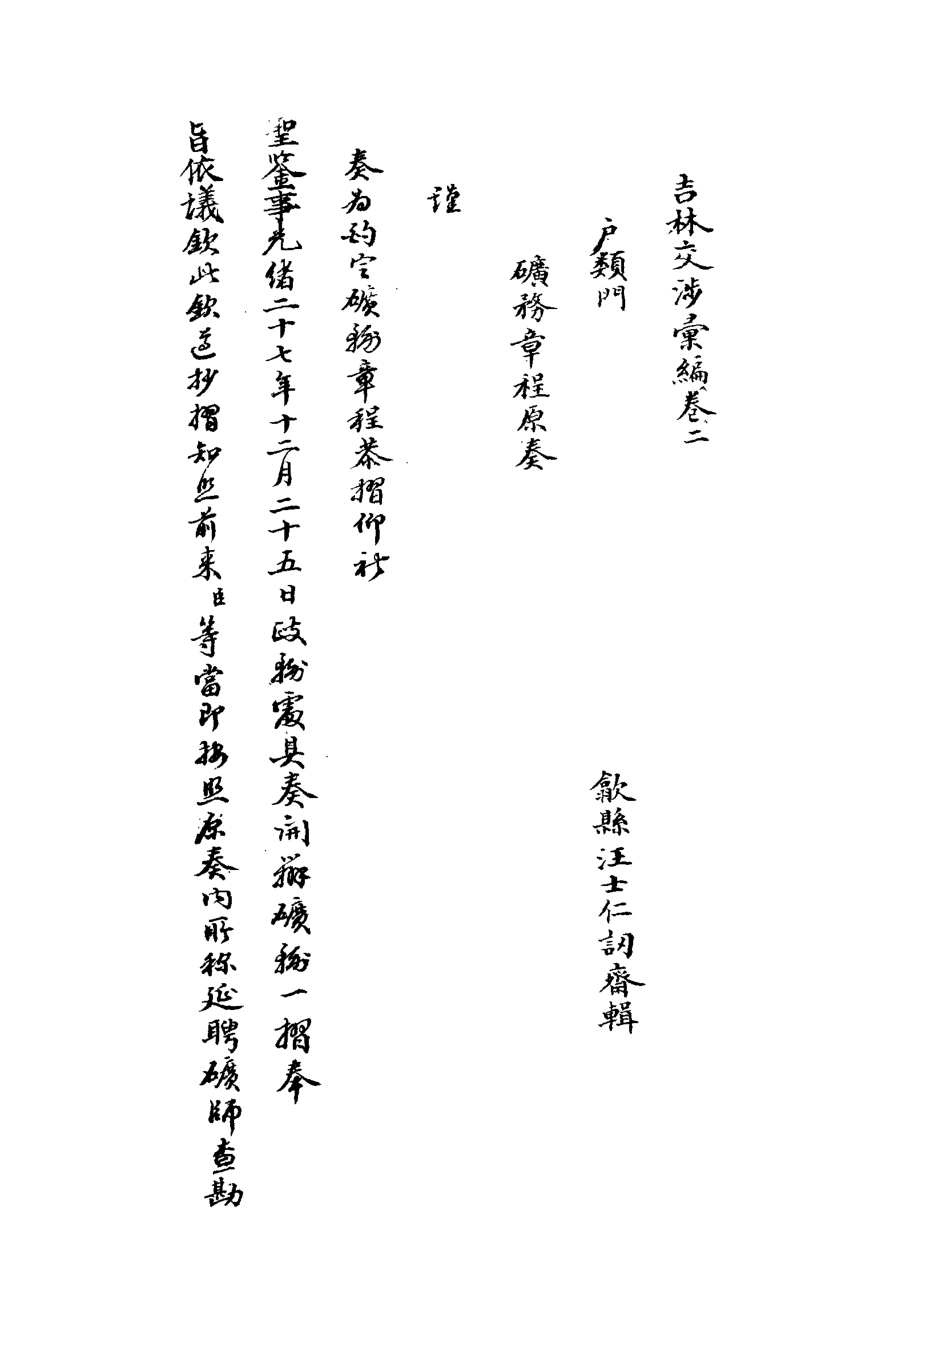 吉林交涉彙編卷二
戶類門
歙縣汪士仁訒齋輯
礦務章程原奏
謹
奏為酌定礦務章程恭摺仰祈
聖鑒事光緒二十七年十二月二十五日政務處具奏開辦礦務一摺奉
旨依議欽此欽遵抄摺知照前來臣等當即按照原奏內所稱延聘礦師查勘